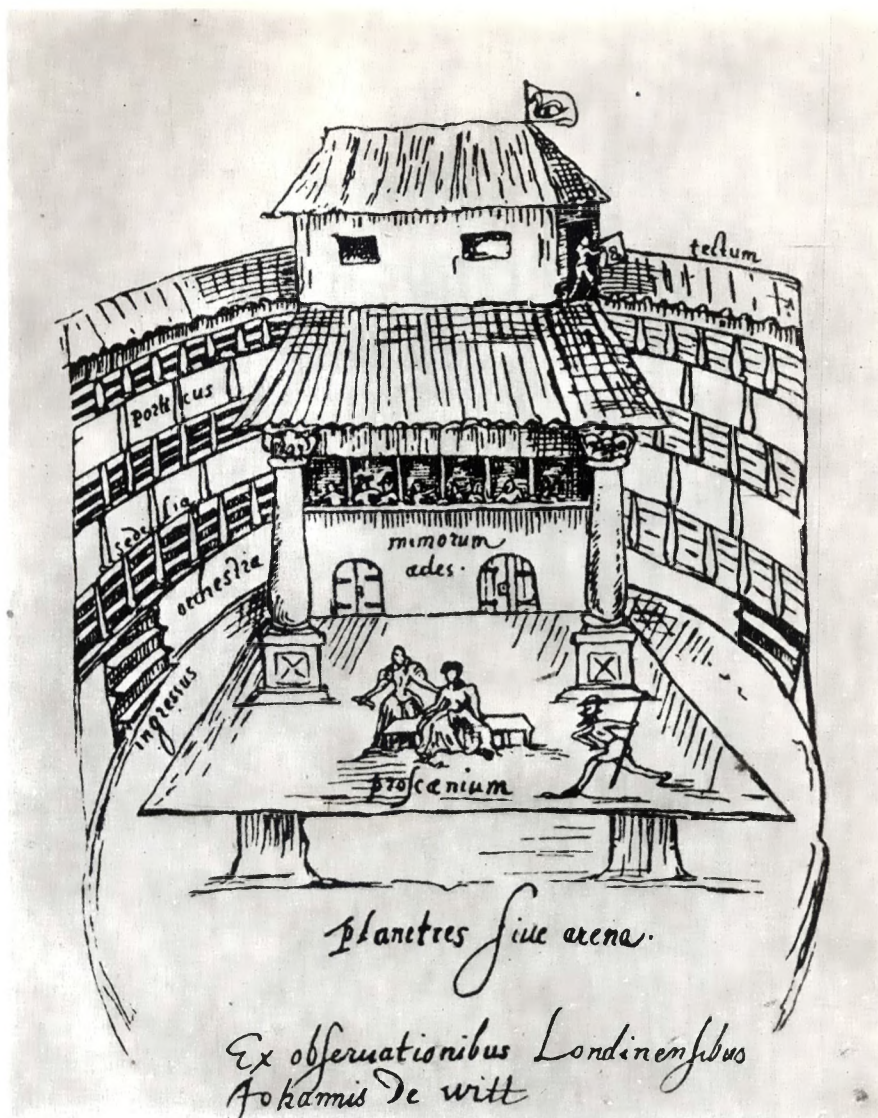 tectum
porticus
sedilia
orchestra
mimorum
ædes.
ingressus
proscænium
planities siue arena.
Ex obseruationibus Londinensibus
Johannis De witt